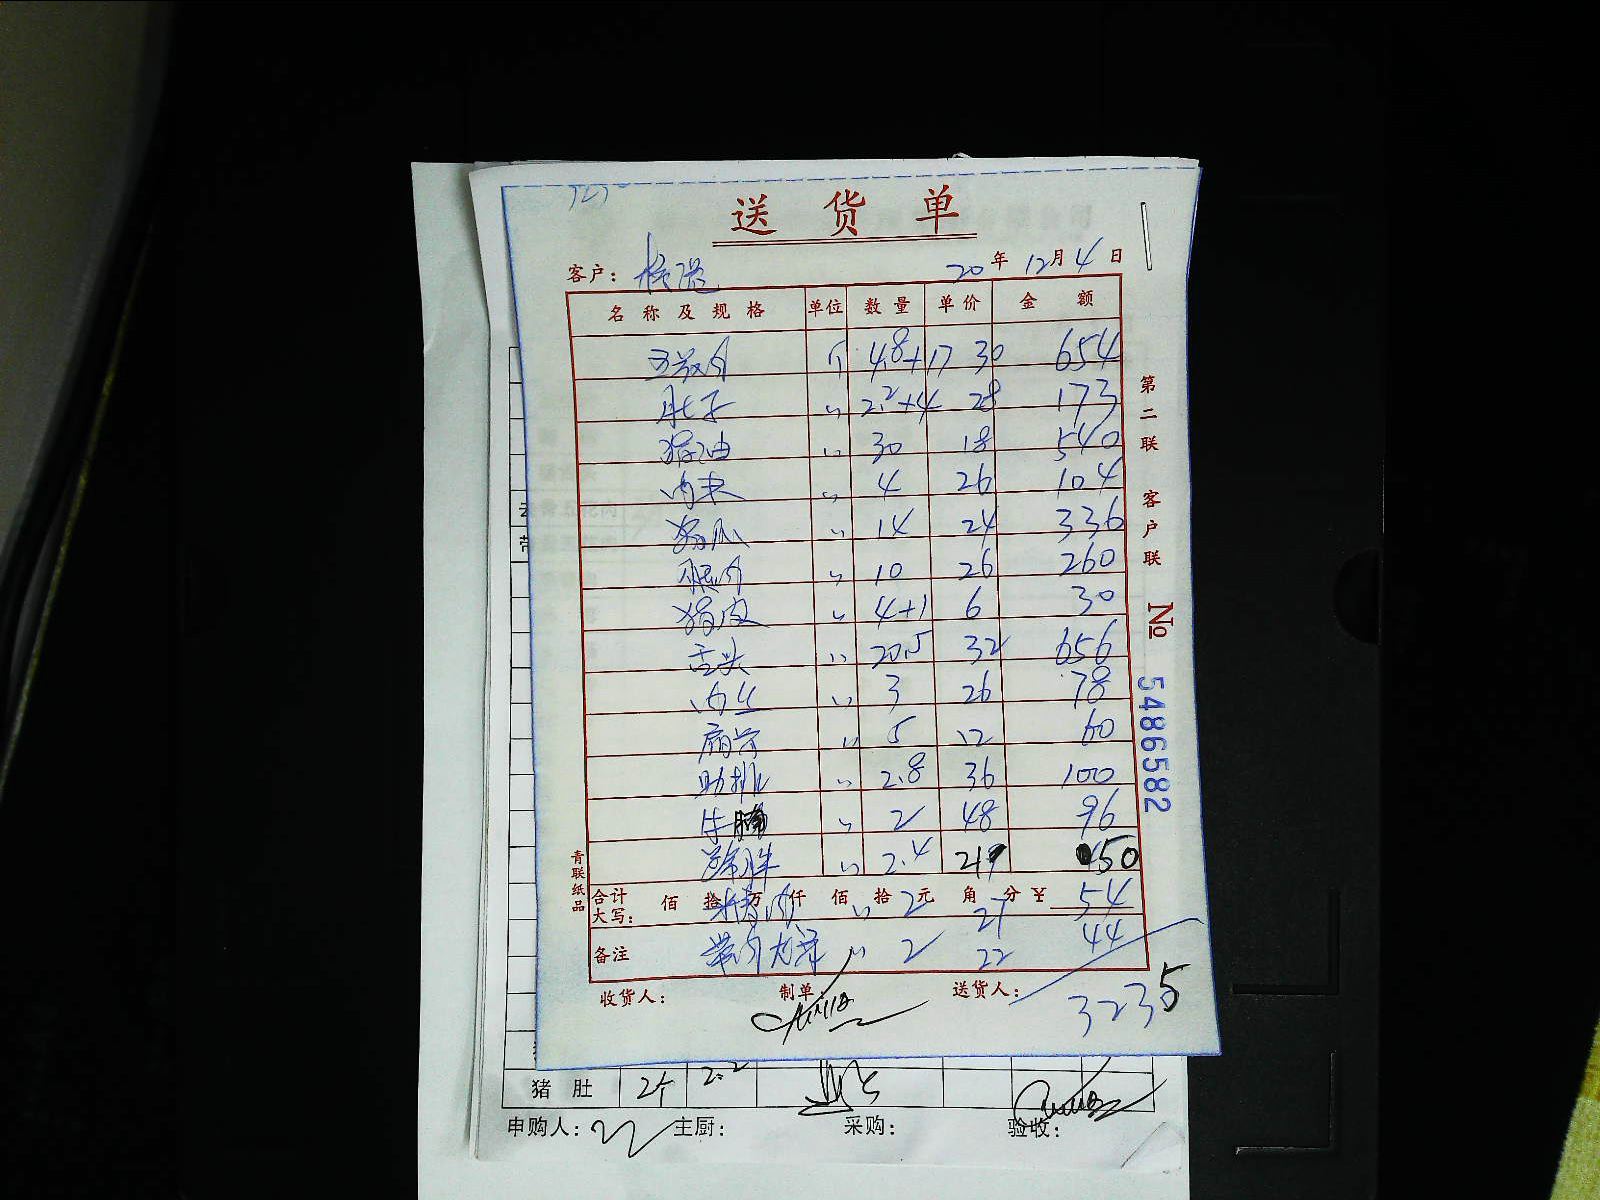 送货单
客户： 20年12月4日
名称及规格 单位 数量 单价 金额
五花肉 斤 4.8+17 30 654
肚子 〃 2.2+4 28 173
猪油 〃 30 18 540
肉末 〃 4 26 104
〃 14 24 336
腿肉 〃 10 26 260
猪皮 〃 4+1 6 30
舌头 〃 20.5 32 656
肉丝 〃 3 26 78
扇骨 〃 5 12 60
肋排 〃 2.8 36 100
牛腩 〃 2 48 96
〃 2.4 21 50
合计大写： 佰 拾 万 仟 佰 拾 元 角 分 ¥
〃 2 27 54
备注 带肉大骨 〃 2 22 44
收货人： 制单： 送货人： 3235
第二联 客户联 № 5486582
青联纸品
猪肚 2个 2.2
申购人： 主厨： 采购： 验收：